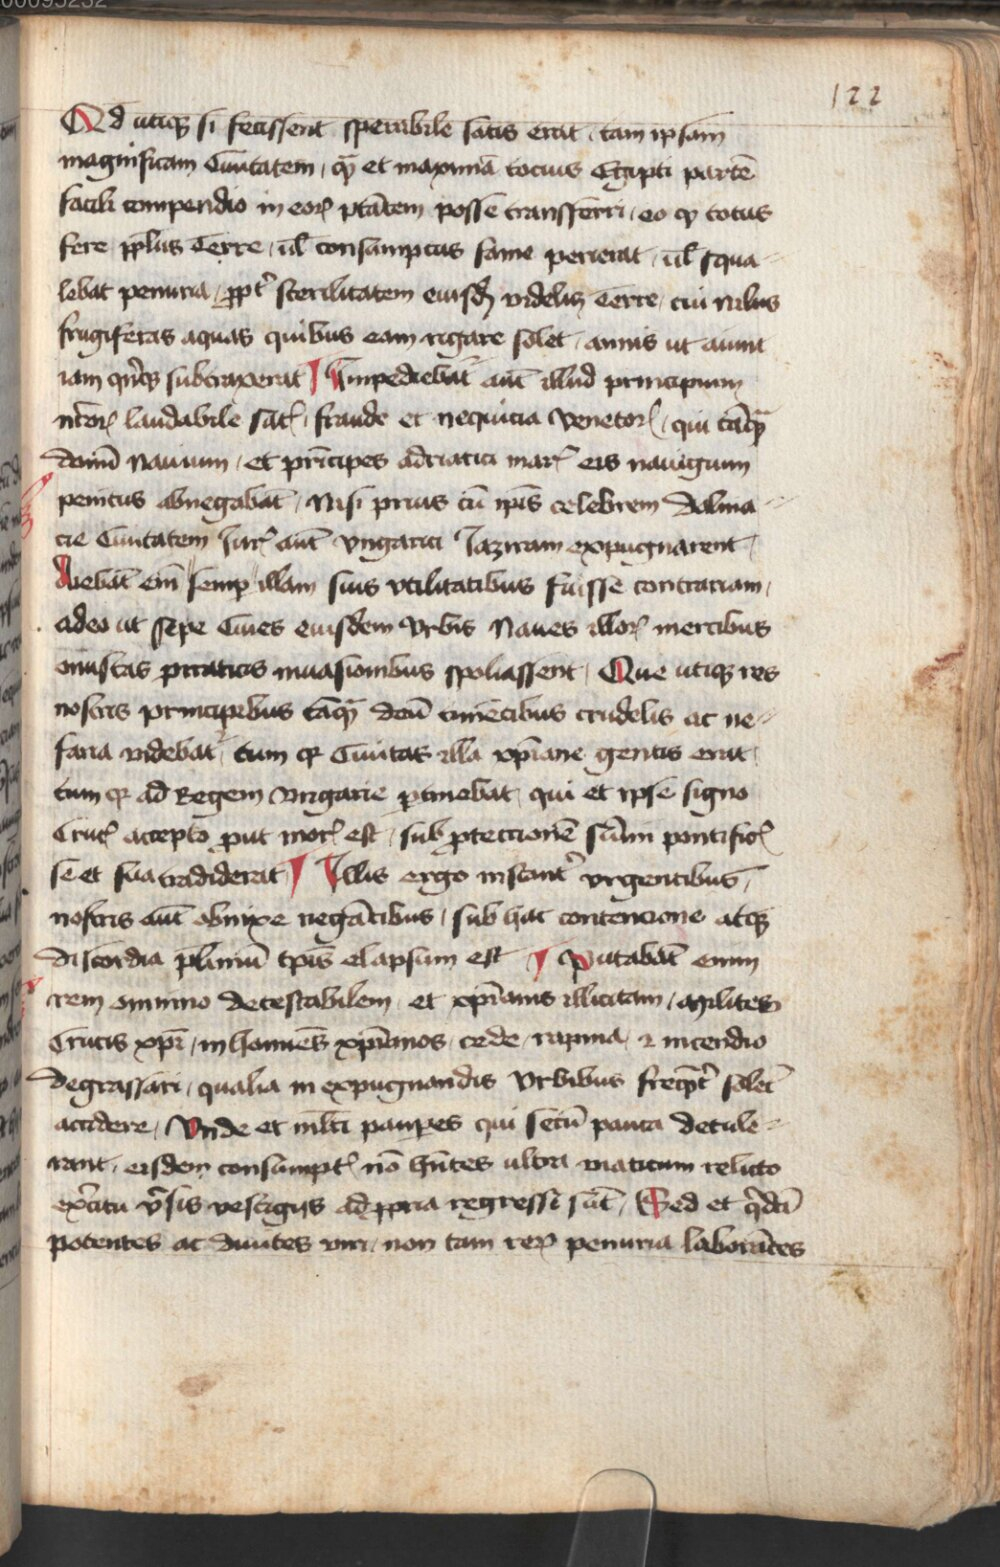 00095232
122
Qd utiqꝫ si fecissent sperabile satis erat, tam ipsam
magnificam Ciuitatem, qᷓ et maximā tocius Egipti partē
facili compendio in eoꝝ ptātem posse transferri, eo ꝙ totus
fere pplus Terre, ul̄ consumptus fame perierat, ul̄ squa-
lebat penuria, ꝓpt̉ sterilitatem eiusdꝫ videliꝫ Terre, cui Nilus
frugiferas aquas quibus eam rigare solet, annis ut aiunt
iam subtraxerat Impediebat aūt illud principium
nr̄oꝝ laudabile satꝭ, fraude et nequicia Venetoꝝ, qui tāqᷓ
domī Nauium, et prīcipes adriatici marꝭ eis nauigium
penitus abnegabāt, Nisi prius cū ip̄is celebrem Dalma-
cie Ciuitatem Iurꝭ aūt Vngarici Iaziram expugnarent,
Aiebāt em̄ semꝑ illam suis vtilitatibus fuisse contrariam,
adeo ut sepe Ciues eiusdem Vrbis Naues illoꝝ mercibus
onustas piraticis inuasionibus spoliassent, Que utiqꝫ res
nostris principibus tāqᷓ deū timētibus crudelis ac ne-
faria videbat̉, tum qꝛ Ciuitas illa xp̄iane gentis erat,
tum qꝛ ad Regem Vngarie ꝑtinebat, qui et ipse signo
Crucꝭ accepto ꝓut morꝭ est, sub ꝓtectionē sūmi pontificꝭ
se et sua tradiderat Illis ergo instant̉ vrgentibus,
nostris aūt obnixe negātibus, sub hac contencione atqꝫ
discordia pl̄imū tp̄is elapsum est Putabāt enim
rem omnino detestabilem, et xp̄ianis illicitam, Milites
Crucis xp̄i, in homīes xp̄ianos, cede, rapina, ⁊ incendio
degrassari, qualia in expugnandis Vrbibus freqn̄t̉ solēt
accidere, Vnde et ml̄ti pauꝑes qui secū pauca detule-
rant, eisdem consumptꝭ nō hn̄tes ultra viaticum relicto
ex̉citu v̉sis vestigijs ad ꝓpria regressi sūt, Sed et q̉dā
potentes ac diuites viri, non tam reꝝ penuria laborātes